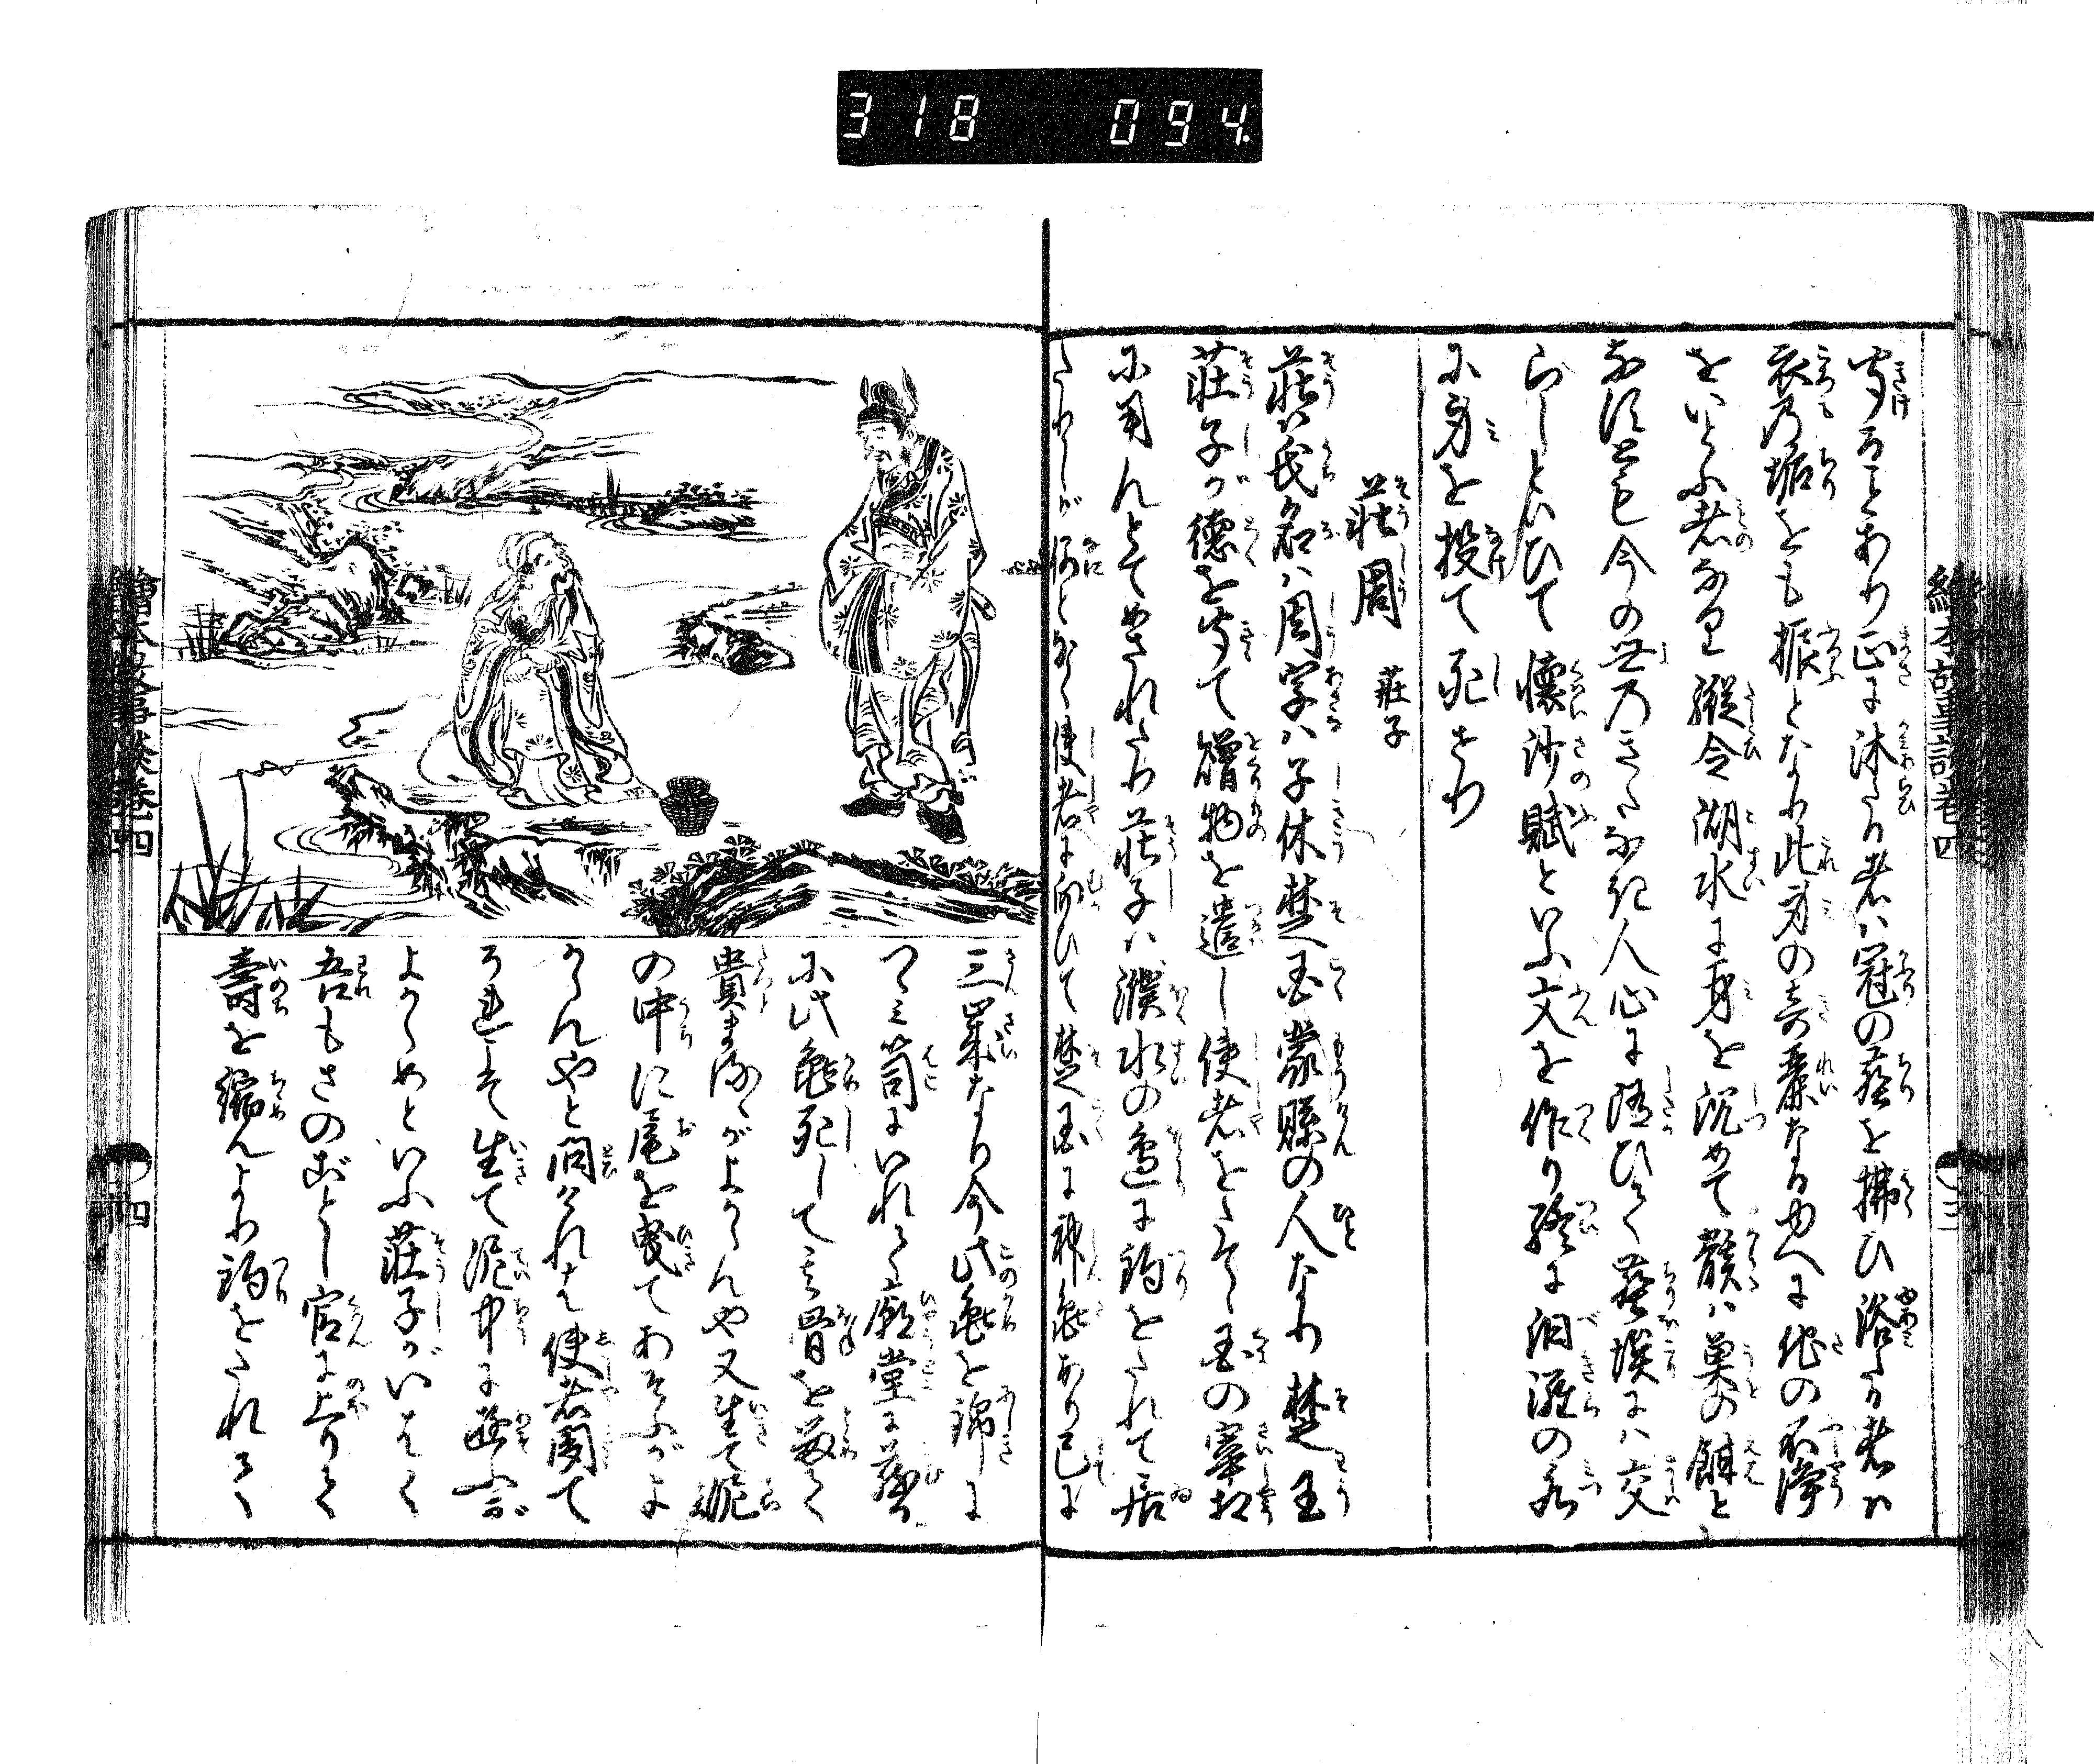 318 094
繪本故事談巻四
聞ることあり正に沐する者は冠の塵を拂ひ浴する者は
衣乃垢をも振となり此身の奇麗なる物に他の不浄
をいとふ者なり縦令湖水に身を沈めて骸は魚の餌と
なすとも今の世乃きたなき人心に随ひて塵埃には交
らじといひて懐沙賦といふ文を作り終に汨羅の水
に身を投て死せり
莊周 莊子
莊は氏名は周字は子休楚国蒙縣の人なり楚王
莊子が徳を聞て贈物を遣し使者をたてゝ国の宰相
に用んとてめされたり莊子は濮水の邉に釣をたれて居
たりしが何となく使者に向ひて楚国に神亀あり已に
三
三千歳なり今此亀を錦に
つゝみ筥にいれて廟堂に蔵
に此亀死して其骨を蔵て
貴まるゝがよからんや又生て泥
の中に尾を曳てあそぶがよ
からんやと問ければ使者聞て
それこそ生て泥中に遊ぶが
よからめといふ莊子がいはく
吾もさのごとし官に上りて
壽を縮んより釣をたれて
繪本故事談巻四
四